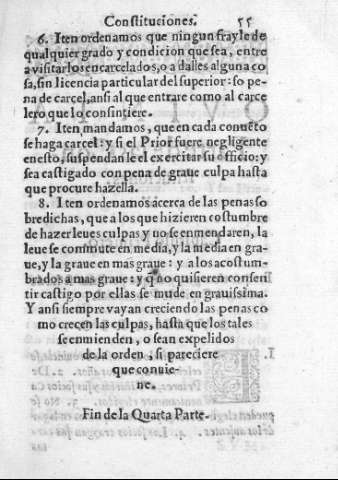 Constituciones. 55
6. Iten ordenamos que ningun frayle de
qualquier grado y condicion que sea, entre
a visitar los encarcelados, o a dalles alguna co
sa, sin licencia particular del superior: so pe
na de carcel, ansi al que entrare como al carce
lero que lo consintiere.
7. Iten mandamos, que en cada conuẽto
se haga carcel: y si el Prior fuere negligente
en esto, suspendanle el exercitar su officio: y
sea castigado con pena de graue culpa hasta
que procure hazella.
8. Iten ordenamos acerca de las penas so
bredichas, que a los que hizieren costumbre
de hazer leues culpas y no se enmendaren, la
leue se commute en media, y la media en gra-
ue, y la graue en mas graue: y a los acostum-
brados a mas graue: y q̃ no quisieren consen
tir castigo por ellas se mude en grauissima.
Y ansi siempre vayan creciendo las penas co
mo crecen las culpas, hasta que los tales
se enmienden, o sean expelidos
de la orden, si pareciere
que conuie-
ne.
Fin de la Quarta Parte.